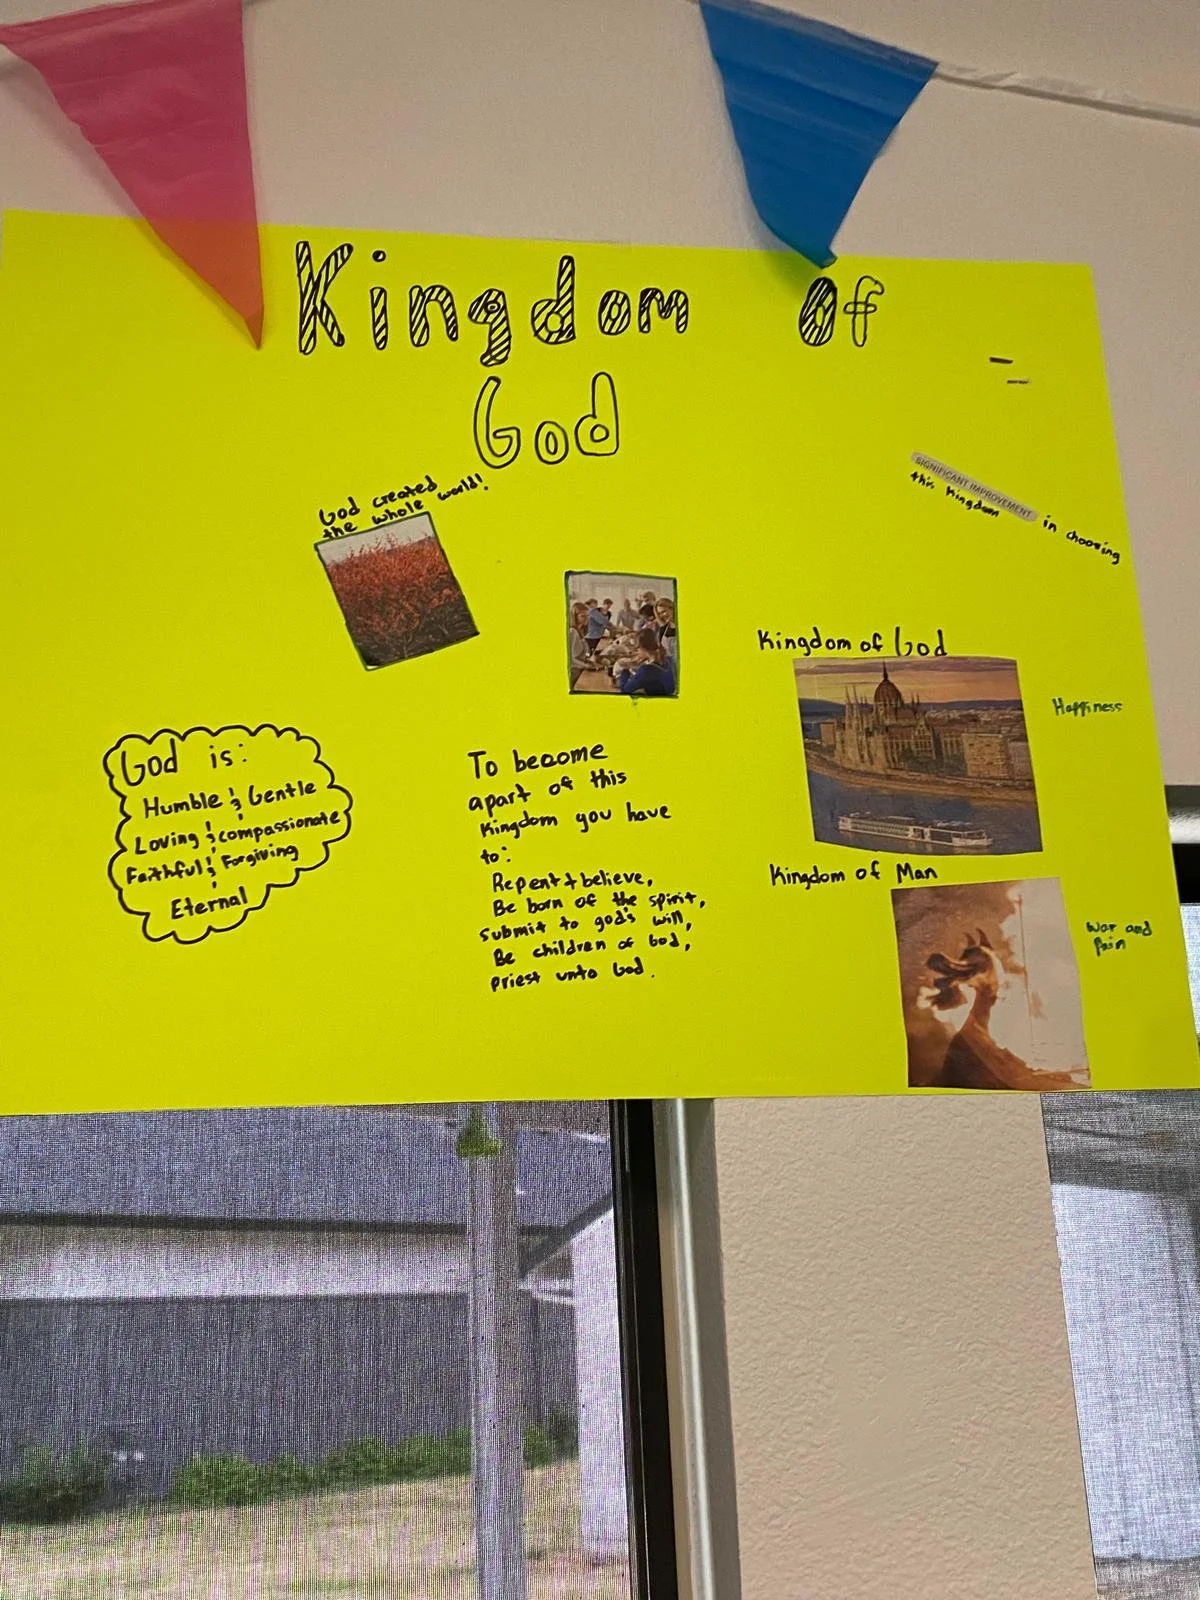 Kingdom of
God
God created
the whole world!
SIGNIFICANT IMPROVEMENT in choosing
this Kingdom
Kingdom of God
Happiness
Kingdom of Man
War and
Pain
God is:
Humble & Gentle
Loving & compassionate
Faithful & Forgiving
Eternal
To become
apart of this
Kingdom you have
to:
Repent + believe,
Be born of the spirit,
submit to god's will,
Be children of God,
priest unto God.